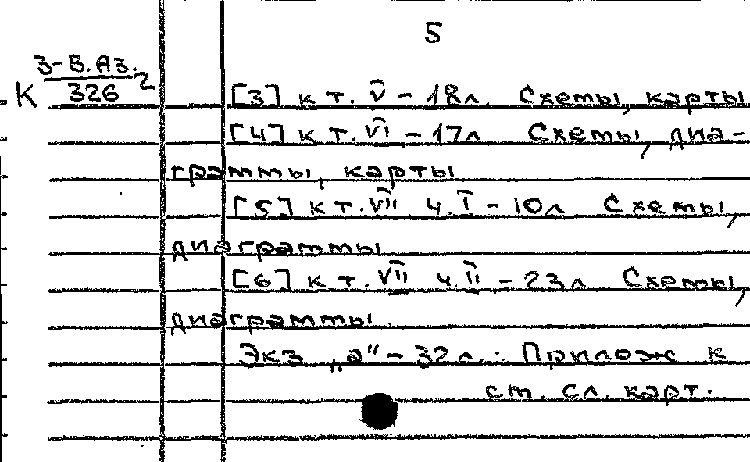 5
З-Б.Аз.
К 326 2
[3] к т. V – 18л. Схемы, карты
[4] к т. VI – 17л Схемы, диа-
граммы, карты
[5] к т. VII ч. I – 10л Схемы,
диаграммы
[6] к т. VII ч. II – 23л Схемы,
диаграммы.
Экз „а" – 32л. Прилож к
ст. сл. карт.